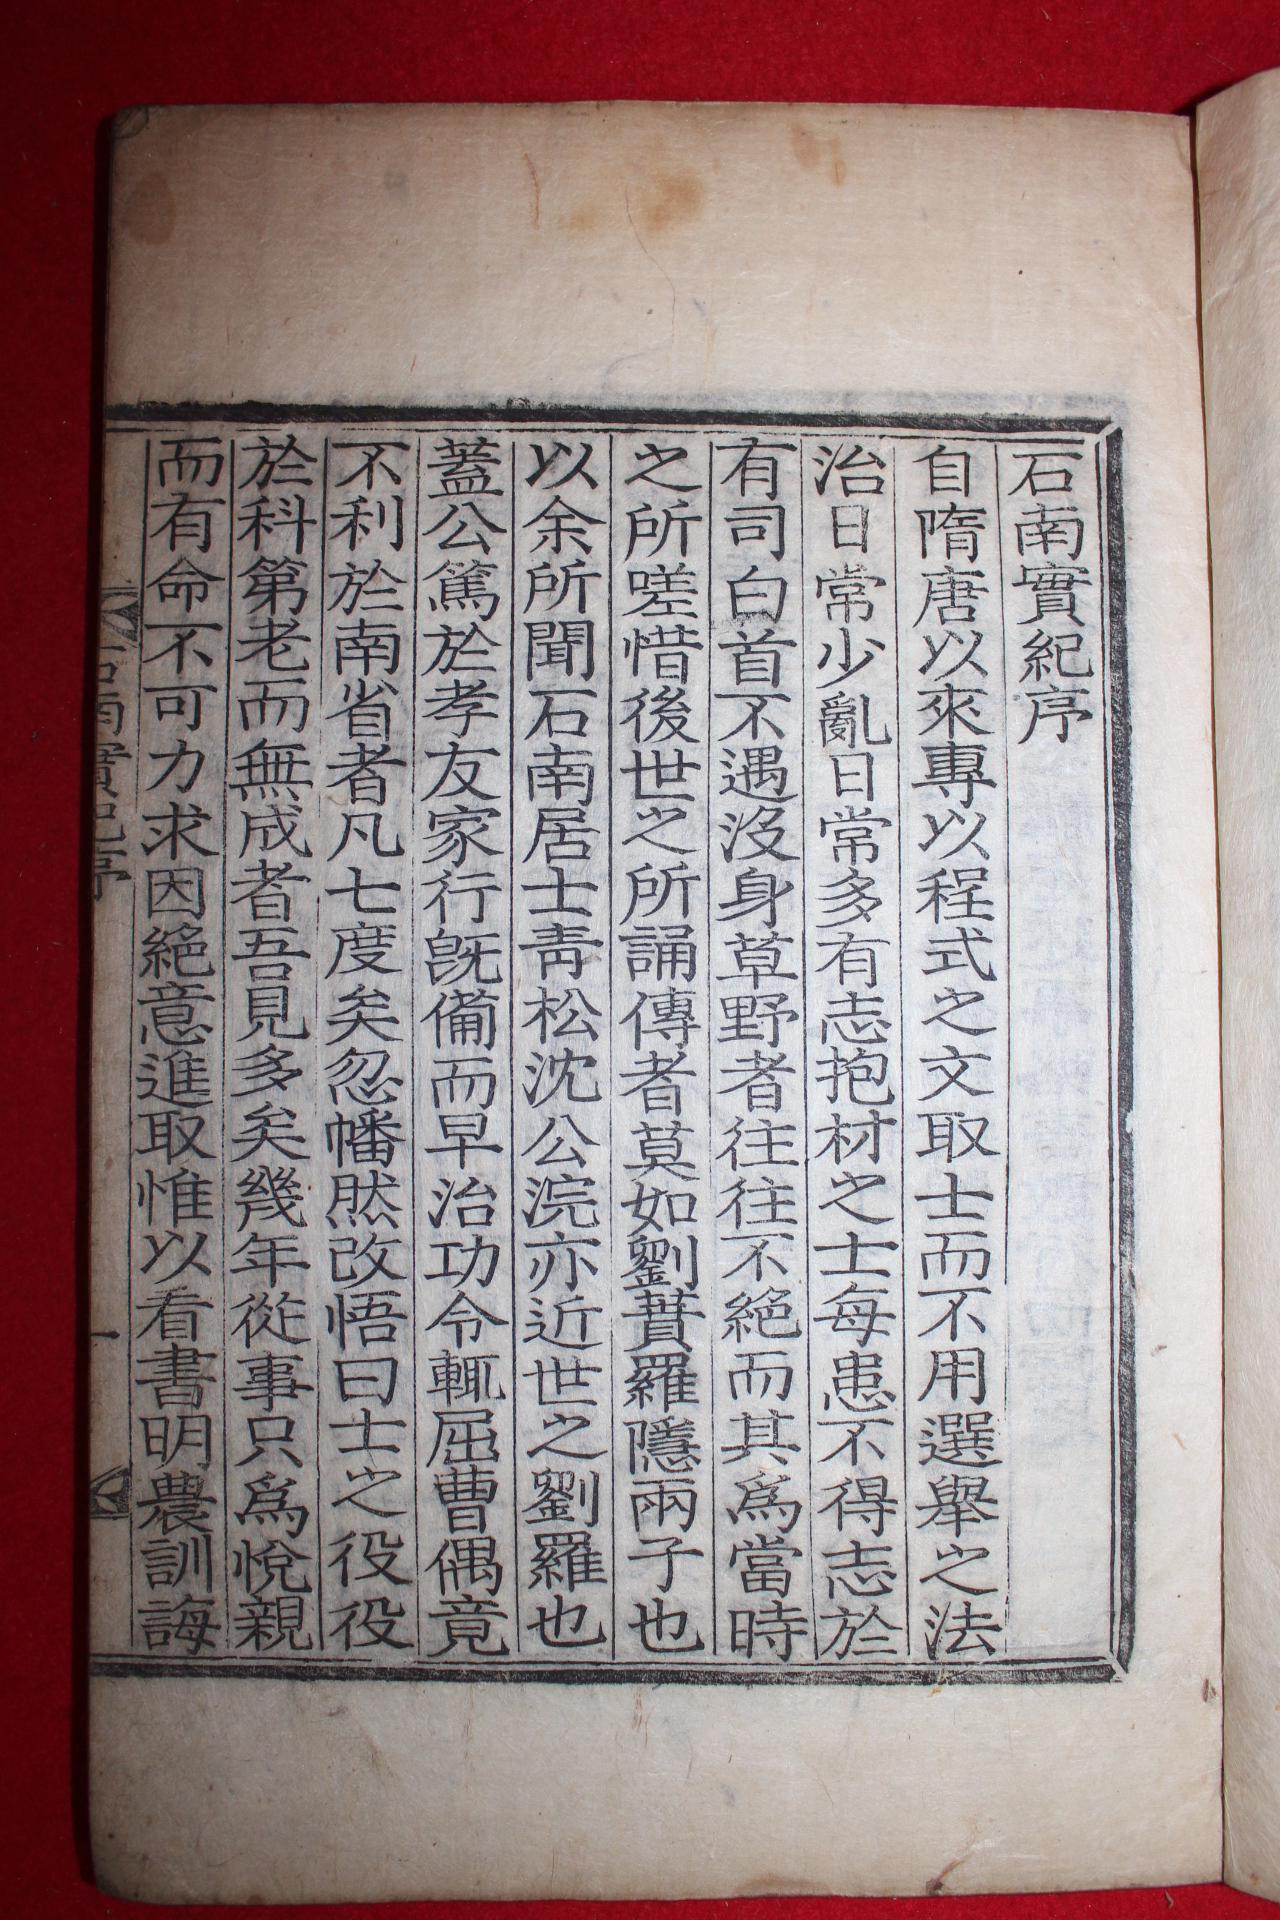 石南實紀序
自隋唐以來專以程式之文取士而不用選舉之法
治日常少亂日常多有志抱材之士每患不得志於
有司白首不遇沒身草野者往往不絕而其爲當時
之所嗟惜後世之所誦傳者莫如劉蕡羅隱兩子也
以余所聞石南居士靑松沈公浣亦近世之劉羅也
蓋公篤於孝友家行旣備而早治功令輒屈曹偶竟
不利於南省者凡七度矣忽幡然改悟曰士之役役
於科第老而無成者吾見多矣幾年從事只爲悅親
而有命不可力求因絕意進取惟以看書明農訓誨
石南實紀序
一